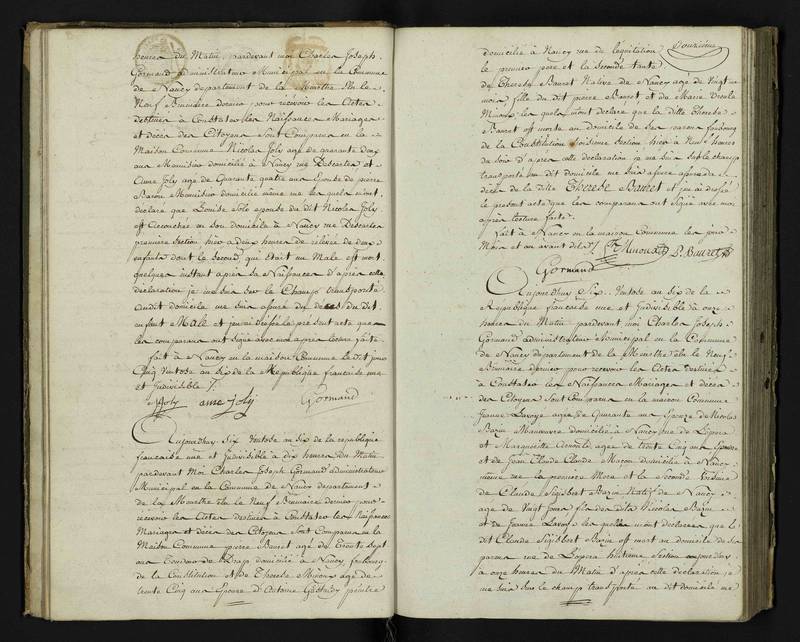 heures du Matin, pardevant moi Charles Joseph
Gormand administrateur Municipal en la Commune
de Nancy departement de la Meurthe Elu le
Neuf Brumaire dernier pour recevoir les Actes
destinés à Constater les Naissances Mariages
et décès des Citoyens Sont Comparus en la
Maison Commune Nicolas Joly age de quarante deux
ans Menuisier domicilié à Nancy rue Descartes et
Anne Joly age de Quarante quatre ans Epouse de pierre
Menuisier domicilié même rue les quels m'ont
declaré que Louise epouse du dit Nicolas Joly
est Accouchée en son domicile à Nancy rue Descartes
premiere Section hier à deux heures de relevée de deux
enfants dont le Second qui était un Male est mort
quelques instant après sa Naissance d'après cette
declaration je me suis sur le Champ transporté
audit domicile me suis assuré du décès du dit
enfant Male et j'ai dressé le présent acte que
les comparans ont signé avec moi après lecture faite
fait à Nancy en la maison Commune le dit jour
Cinq Ventose an six de la Republique francaise une
et Indivisible /.
Njoly anne joly Gormand
Aujourdhuy Six Ventose an Six de la republique
francaise une et Indivisible à dix heures du Matin
pardevant Moi Charles Joseph Gormand administrateur
Municipal en la Commune de Nancy departement
de la Meurthe élu le Neuf Brumaire dernier pour
recevoir les Actes destinés à Constater les Naissances
Mariages et décès des Citoyens Sont Comparus en la
Maison Commune pierre Bauret agé de Trente Sept
ans Tondeur de Drap domicilié à Nancy faubourg
de la Constitution et de Therese Minoux age de
trente Cinq ans Epouse d'Antoine peintre
douzieme
domicilié à Nancy rue de
le premier pere et la Seconde tante
de Therese Bauret Native de Nancy age de Vingt un
mois fille du dit pierre Bauret et de Marie Ursule
Minoux les quels m'ont declaré que la ditte Therese
Bauret est morte au domicile de ses parens faubourg
de la Constitution Section hier à Neuf heures
du Soir d'après cette declaration je me suis sur le champ
transporté au dit domicile me suis assuré du
décès de la ditte Therese Bauret et j'ai dressé
le présent acte que les comparans ont signé avec moi
après lecture faite.
fait à Nancy en la maison Commune les jour
Mois et an avant dits /. T Minoux P. Bauret
Gormand
Aujourdhuy Six Ventose an six de la
Republique francaise une et Indivisible à onze
heures du Matin pardevant moi Charles Joseph
Gormand administrateur Municipal en la Commune
de Nancy departement de la Meurthe élu le Neuf
Brumaire dernier pour recevoir les Actes destinés
à Constater les Naissances Mariages et décès
des Citoyens Sont Comparus en la maison Commune
Jeanne agée de Quarante ans Epouse de Nicolas
Bazin Manœuvre domicilié à Nancy rue de
et Marguerite agée de trente Cinq ans Epouse
de Jean Claude Claude Maçon domicilié à Nancy
même rue la premiere Mere et la Seconde
de Claude Sigisbert Bazin Natif de Nancy
age de Vingt jours fils dudit Nicolas Bazin
et de Jeanne les quelles m'ont declaré que le
dit Claude Sigisbert Bazin est mort au domicile de ses
parens rue de huitieme Section aujourdhuy
à onze heures du Matin d'après cette declaration je
me suis sur le champ transporté au dit domicile me